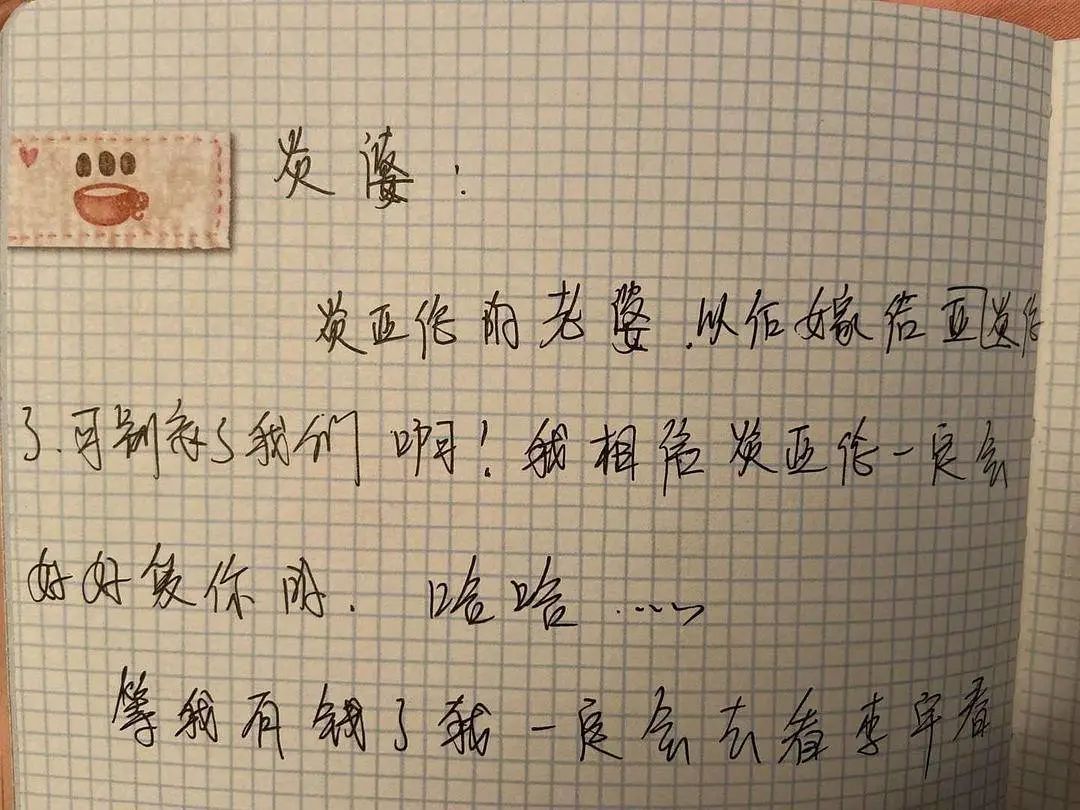 炎婆：
炎亚纶的老婆.以后嫁给亚炎纶
了.可别忘了我们啊！我相信炎亚纶一定会
好好爱你的. 哈哈……
等我有钱了我一定会去看李宇春